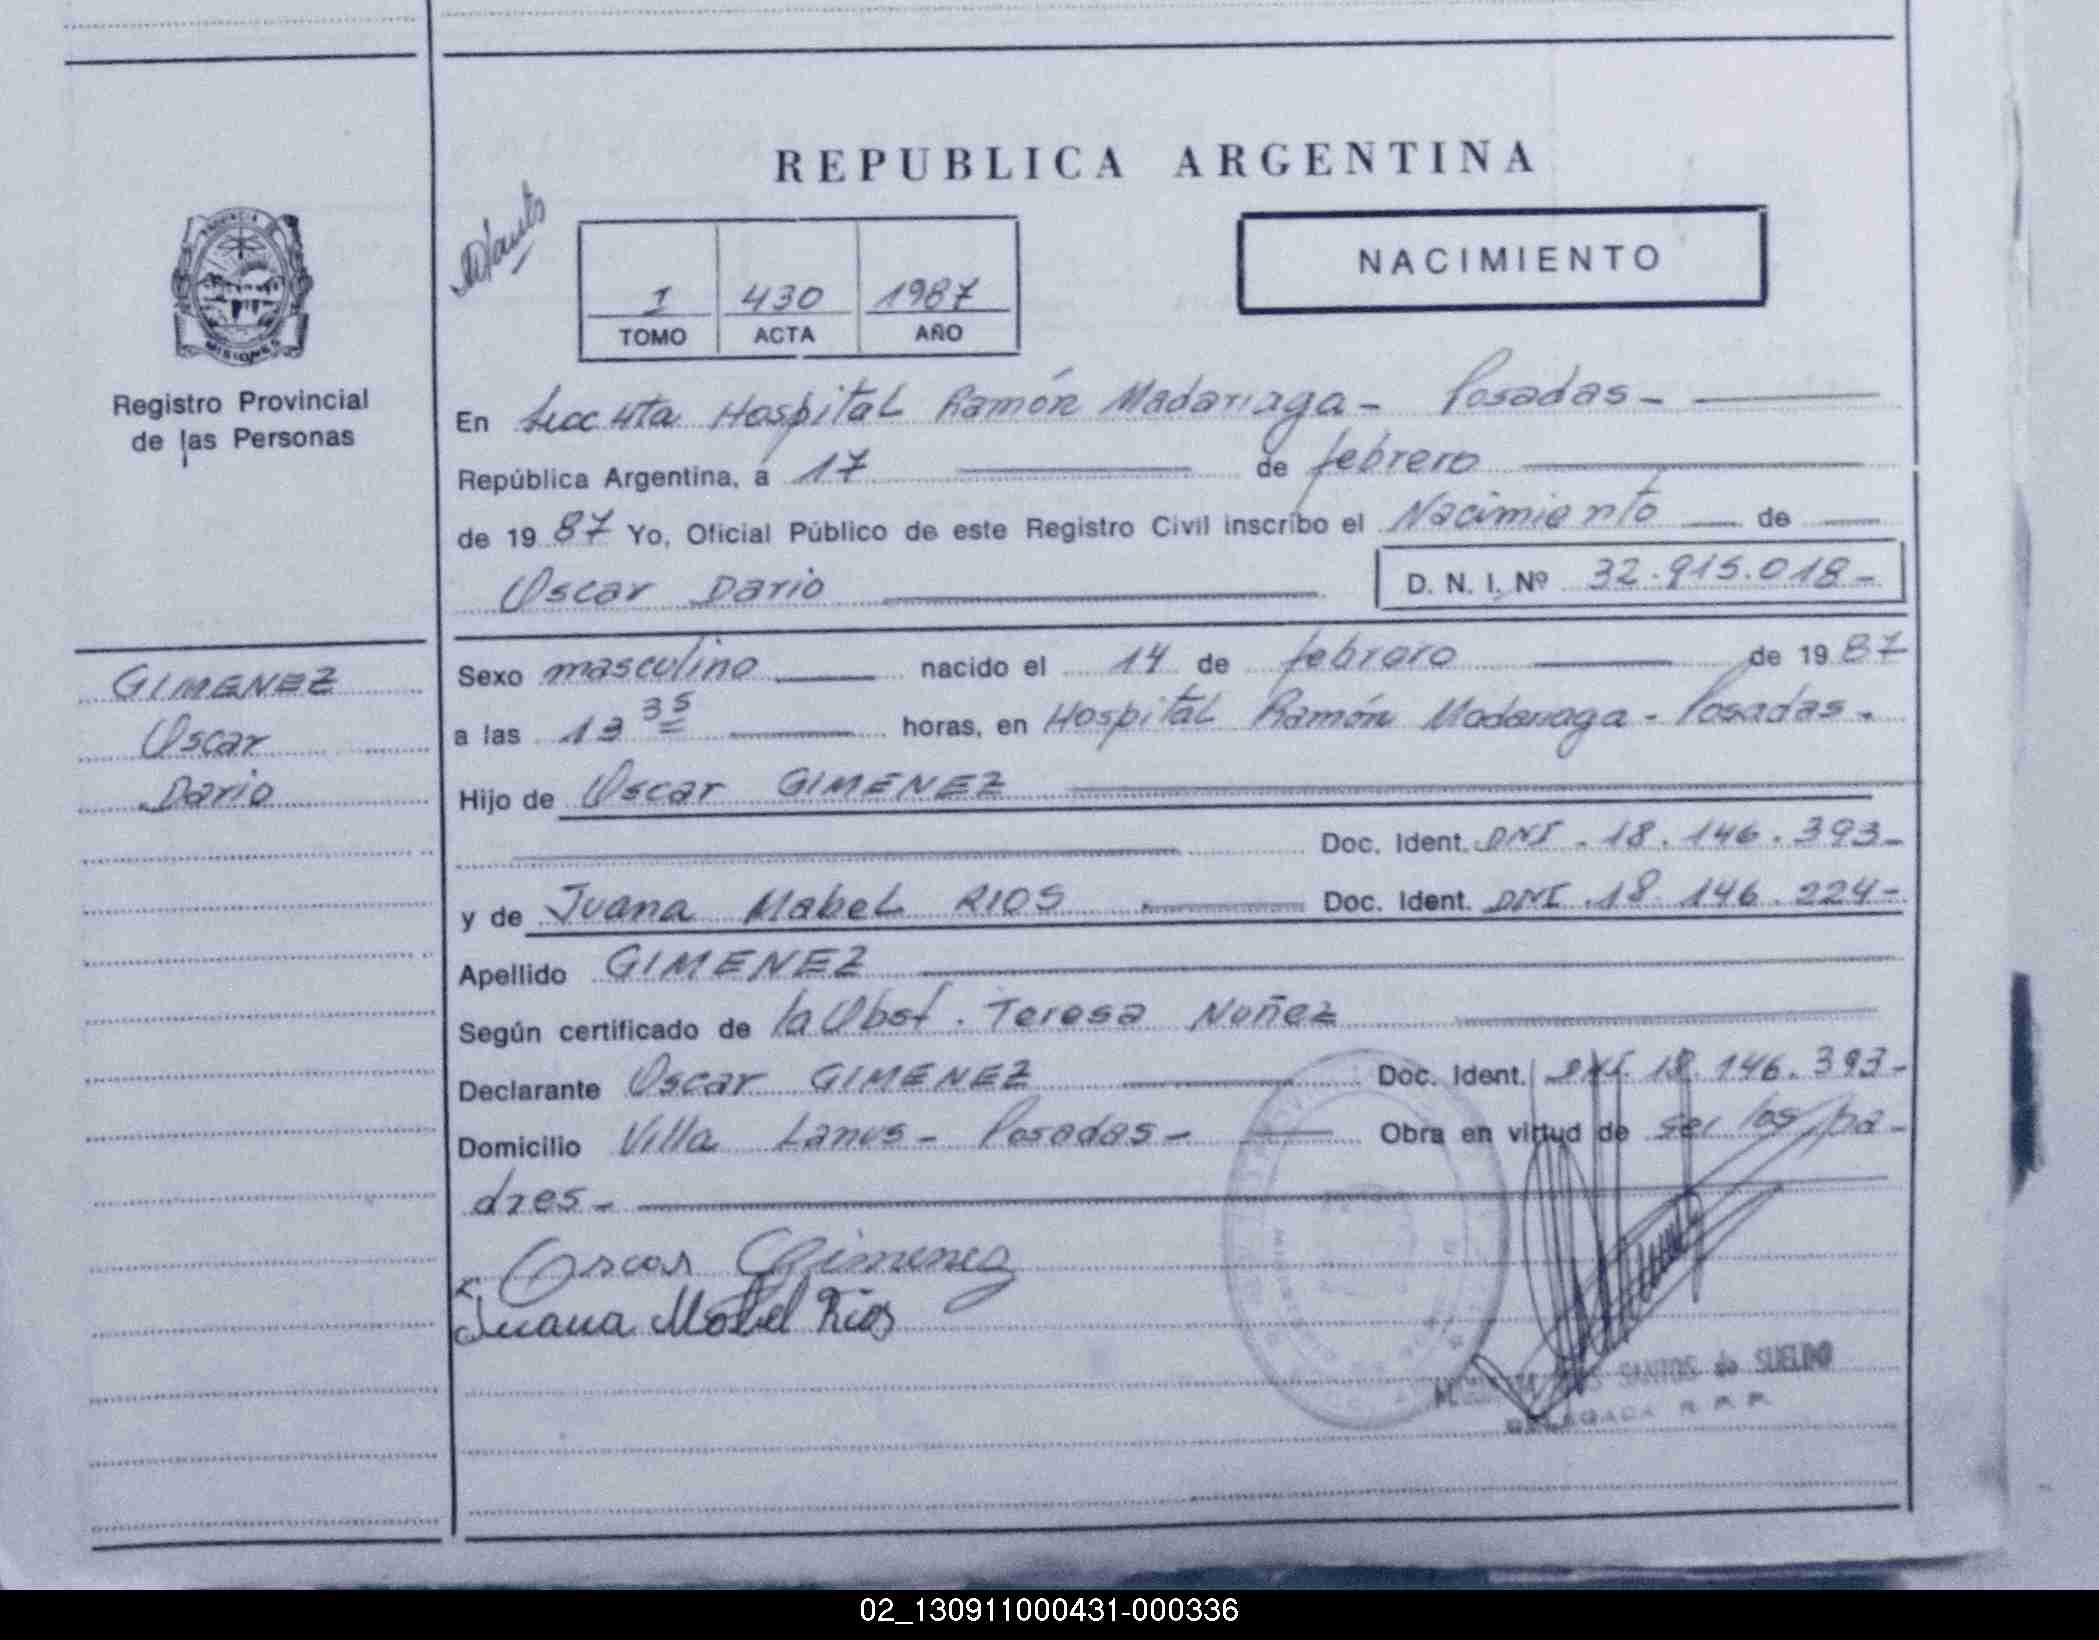 REPUBLICA ARGENTINA
NACIMIENTO
I 430 1987
TOMO ACTA AÑO
PROVINCIA
MISIONES
Registro Provincial
de las Personas
En Secc 4ta Hospital Ramón Madariaga - Posadas -
República Argentina, a 17 de febrero
de 1987 Yo, Oficial Público de este Registro Civil inscribo el Nacimiento de
Oscar Dario D. N. I. Nº 32.915.018-
GIMENEZ
Oscar
Dario
Sexo masculino nacido el 14 de febrero de 1987
a las 13 35 horas, en Hospital Ramón Madariaga - Posadas -
Hijo de Oscar GIMENEZ
Doc. Ident. DNI - 18.146.393-
y de Juana Mabel RIOS Doc. Ident. DNI .18.146.224-
Apellido GIMENEZ
Según certificado de la Obst. Teresa Nuñez
Declarante Oscar GIMENEZ Doc. Ident. DNI. 18.146.393-
Domicilio Villa Lanus - Posadas - Obra en virtud de ser los pa-
dres -
Oscar Gimenez
Juana Mabel Rios
SANTOS de SUELDO
DELEGADA R. P. P.
02_130911000431-000336